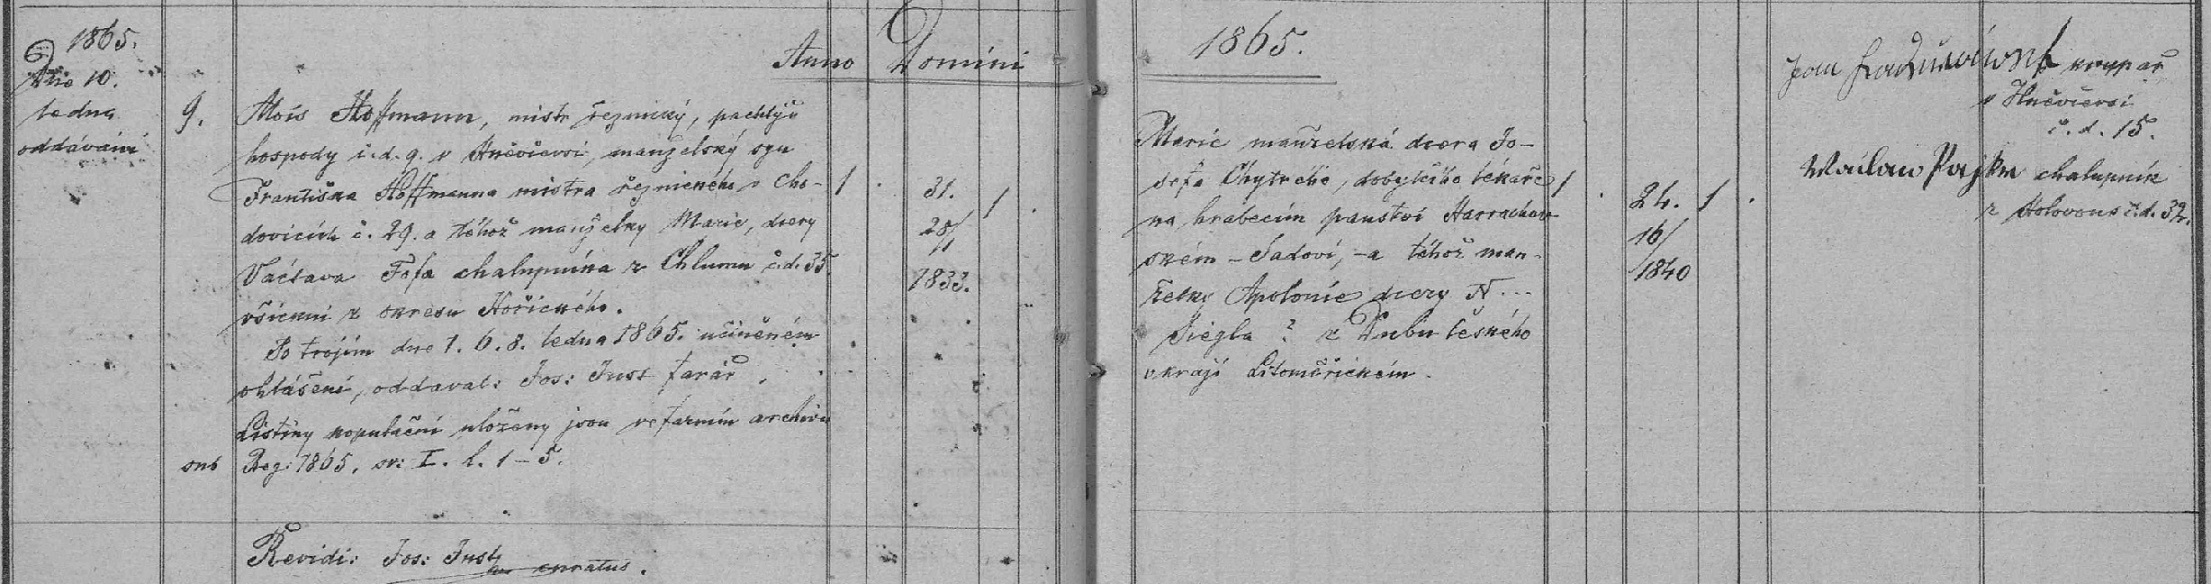 Anno Domini 1865.
1865.
Dne 10.
ledna
oddáváni
9.
Alois Hoffmann, mistr řeznický, pachtýř
hospody č. d. 9. v Hněvčevsi, manželský syn
Františka Hoffmanna mistra řeznického v Cho-
dovicích č. 29. a téhož manželky Marie, dcery
Václava Fofa chalupníka z Chlumu č. d. 35.
všickni z okresu Hořického.
Po trojím dne 1. 6. 8. ledna 1865. učiněném
ohlášení, oddával: Jos: Just farář.
Listiny kopulační uloženy jsou ve farním archivu
sub Reg: 1865. sv: I. l. 1–5.
1
31.
28/1
1833.
1
Marie manželská dcera Jo-
sefa Chytrého, dobytčího lékaře
na hraběcím panství Harrachov-
ském – Sadoví, – a téhož man-
želky Apolonie dcery N...
Siegla ? z Dubu českého
v kraji Litoměřickém.
1
24.
16/
1840
1
Jan krupař
v Hněvčevsi
č. d. 15.
Waclaw Pajkr chalupník
z Holovous č. d. 32.
Revidi: Jos: Just
curatus.